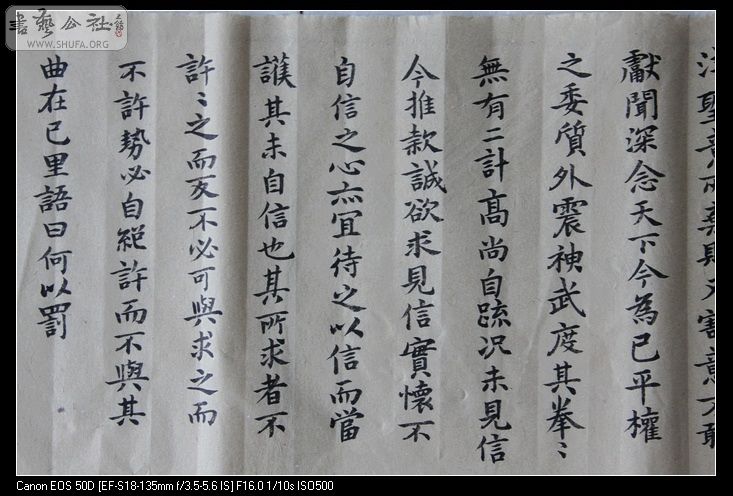 書藝公社
www.SHUFA.ORG
獻聞深念天下今為已平權
之委質外震神武度其拳〻
無有二計高尚自疏况未見信
今推款誠欲求見信實懷不
自信之心亦冝待之以信而當
護其未自信也其所求者不
許〻之而反不必可與求之而
不許勢必自絕許而不與其
曲在已里語曰何以罰
Canon EOS 50D [EF-S18-135mm f/3.5-5.6 IS] F16.0 1/10s ISO500